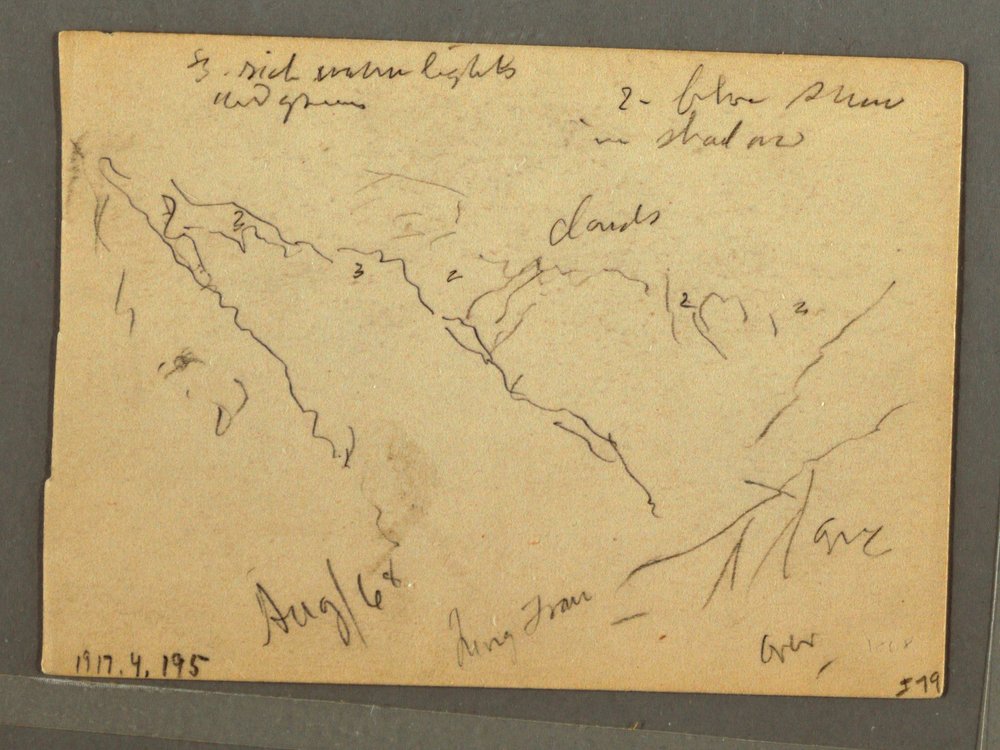 3. rich warm lights
and greens
2- blue snow
in shadow
Clouds
2
2
3
2
2
2
Aug/68
Jung Frau
over
1917.4.195
579